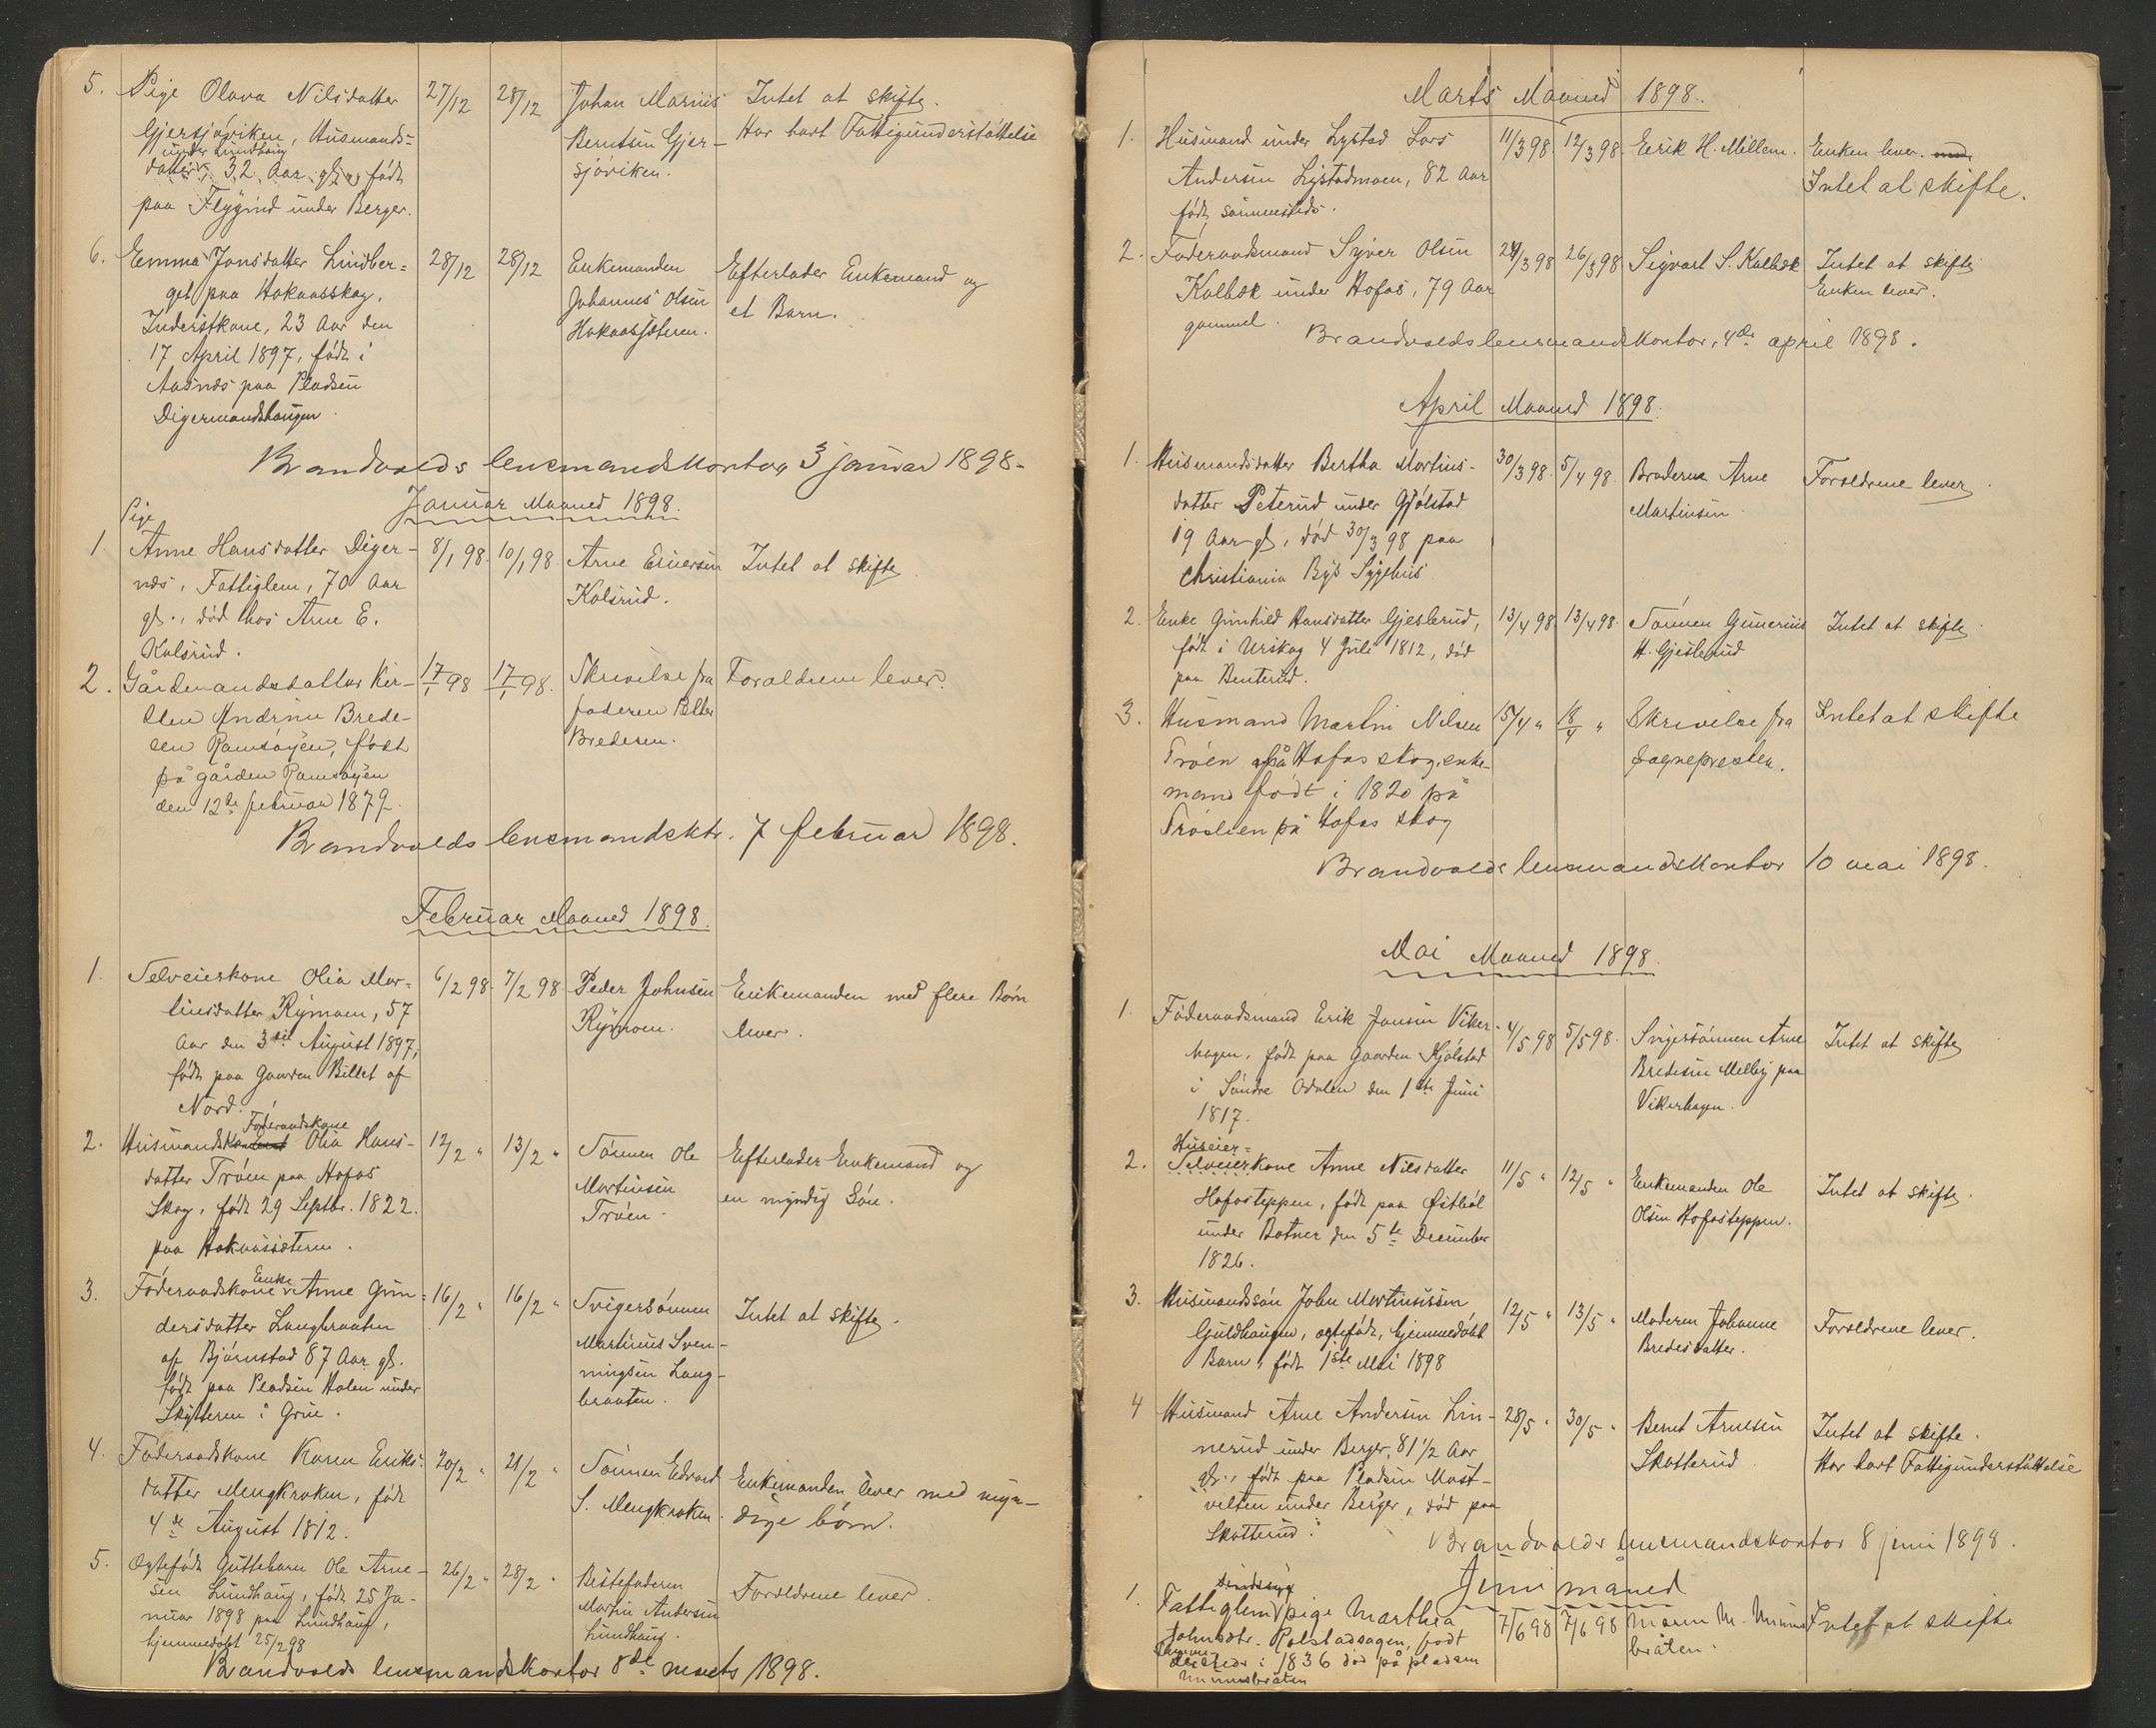 5. Pige Olava Nilsdatter 27/12 28/12 Johan Marius Intet at skifte.
Gjersjøviken, Husmands= Berntsen Gjer- Har havt Fattigunderstøttelse
under Lundhaug
datter, 32 Aar gl., født sjøviken.
paa Flygind under Berger.
6. Emma Jonsdatter Lindber= 28/12 28/12 Enkemanden Efterlader Enkemand og
get paa Hokaasskog, Johannes Olsen et Barn.
Inderstkone, 23 Aar den Hokaassæteren.
17 April 1897, født i
Aasnæs paa Pladsen
Digermandshaugen.
Brandvolds lensmandskontor, 3 januar 1898.
Januar Maaned 1898.
Pige
1. Anne Hansdatter Diger- 8/1 98. 10/1 98. Arne Eriersen Intet at skifte
næs, Fattiglem, 70 Aar Kolsrud.
gl., død hos Arne E.
Kolsrud.
2. Gårdmandsdatter Kir- 17/1 98 17/1 98. Skrivelse fra Forældrene lever.
sten Andrine Brede- faderen Petter
sen Ramsøyen, født Bredesen.
på gården Ramsøyen
den 12te februar 1879.
Brandvolds lensmandsktr. 7 februar 1898.
Februar Maaned 1898.
1. Selveierkone Olia Mar= 6/2 98. 7/2 98 Peder Johnsen Enkemanden med flere Børn
tinsdatter Rymoen, 57 Rymoen. lever.
Aar den 3die August 1897,
født paa Gaarden Billet af
Nord.
Føderaadskone
2. Husmandskone Olia Hans- 12/2 " 13/2 " Sønnen Ole Efterlader Enkemand og
datter Trøen paa Hofos Martinsen en myndig Søn.
Skog, født 29 Septbr. 1822. Trøen.
paa Hokaassæteren.
Enke
3. Føderaadskone Anne Gun= 16/2 " 16/2 " Svigersønnen Intet at skifte.
dersdatter Langbraaten Martinus Sven-
af Bjørnstad 87 Aar gl. ningsen Lang-
født paa Pladsen Holen under braaten.
Skytteren i Grue.
4. Føderaadskone Karen Eriks- 20/2 " 21/2 " Sønnen Edvard Enkemanden lever med myn-
datter Mengkroken, født S. Mengkroken. dige børn.
4de August 1812.
5. Ægtefødt Guttebarn Ole Arne- 26/2 " 28/2 " Bestefaderen Forældrene lever.
sen Lundhaug, født 25 Ja- Martin Andersen
nuar 1898 paa Lundhaug, Lundhaug.
hjemmedøbt 25/2 98
Brandvolds lensmandskontor 8de marts 1898.
Marts Maaned 1898.
1. Husmand under Lystad Lars 11/3 98 12/3 98. Erik H. Millem. Enken lever.
Andersen Lystadmoen, 82 Aar Intet at skifte.
født sammesteds.
2. Føderaadsmand Syver Olsen 24/3 98 26/3 98 Sigvart S. Kalbæk Intet at skifte
Kalbæk under Hofos, 79 Aar Enken lever.
gammel.
Brandvolds lensmandskontor, 4de april 1898.
April Maaned 1898.
1. Husmandsdatter Bertha Martins- 30/3 98. 5/4 98. Broderen Arne Forældrene lever.
datter Peterud under Gjølstad Martinsen
19 Aar gl, død 30/3 98 paa
Christiania Bys Sygehus
2. Enke Gunhild Hansdatter Gjeslerud, 13/4 98 13/4 98. Sønnen Gunerius Intet at skifte.
født i Urskog 4 Juli 1812, død H. Gjeslerud
paa Benterud.
3. Husmand Martin Nilsen 15/4 " 18/4 " Skrivelse fra Intet at skifte
Trøen på Hofos skog, enke- sognepresten.
mand født i 1820 på
Trøslien på Hofos skog
Brandvolds lensmandskontor 10 mai 1898.
Mai Maaned 1898.
1. Føderaadsmand Erik Jansen Viker- 4/5 98 5/5 98. Svigersønnen Arne Intet at skifte
hagen, født paa Gaarden Skjølstad Bredesen Melby paa
i Søndre Odalen den 1ste Juni Vikerhagen.
1817.
Huseier=
2. Selveierkone Anne Nilsdatter 11/5 " 12/5 " Enkemanden Ole Intet at skifte.
Hofosteppen, født paa Østbøl Olsen Hofosteppen.
under Botner den 5te December
1826.
3. Husmandssøn John Martiniussen 12/5 " 13/5 " Moderen Johanne Forældrene lever.
Guldhaugen, ægtefødt, hjemmedøbt Bredesdatter.
Barn, født 1ste Mai 1898
4 Husmand Arne Andersen Lin- 28/5 " 30/5 " Bernt Arnesen Intet at skifte.
nerud under Berger, 81 1/2 Aar Skatterud. Har havt Fattigunderstøttelse
gl., født paa Pladsen Mast-
velten under Berger, død paa
Skatterud.
Brandvolds lensmandskontor 8 juni 1898.
Juni måned
sindssyg
1. Fattiglem pige Marthea 7/6 98 7/6 98 Maren M. Mums Intet at skifte
Johnsdtr. Rolstadsagen, født bråten.
i 1836 død på pladsen
Mumsbråten